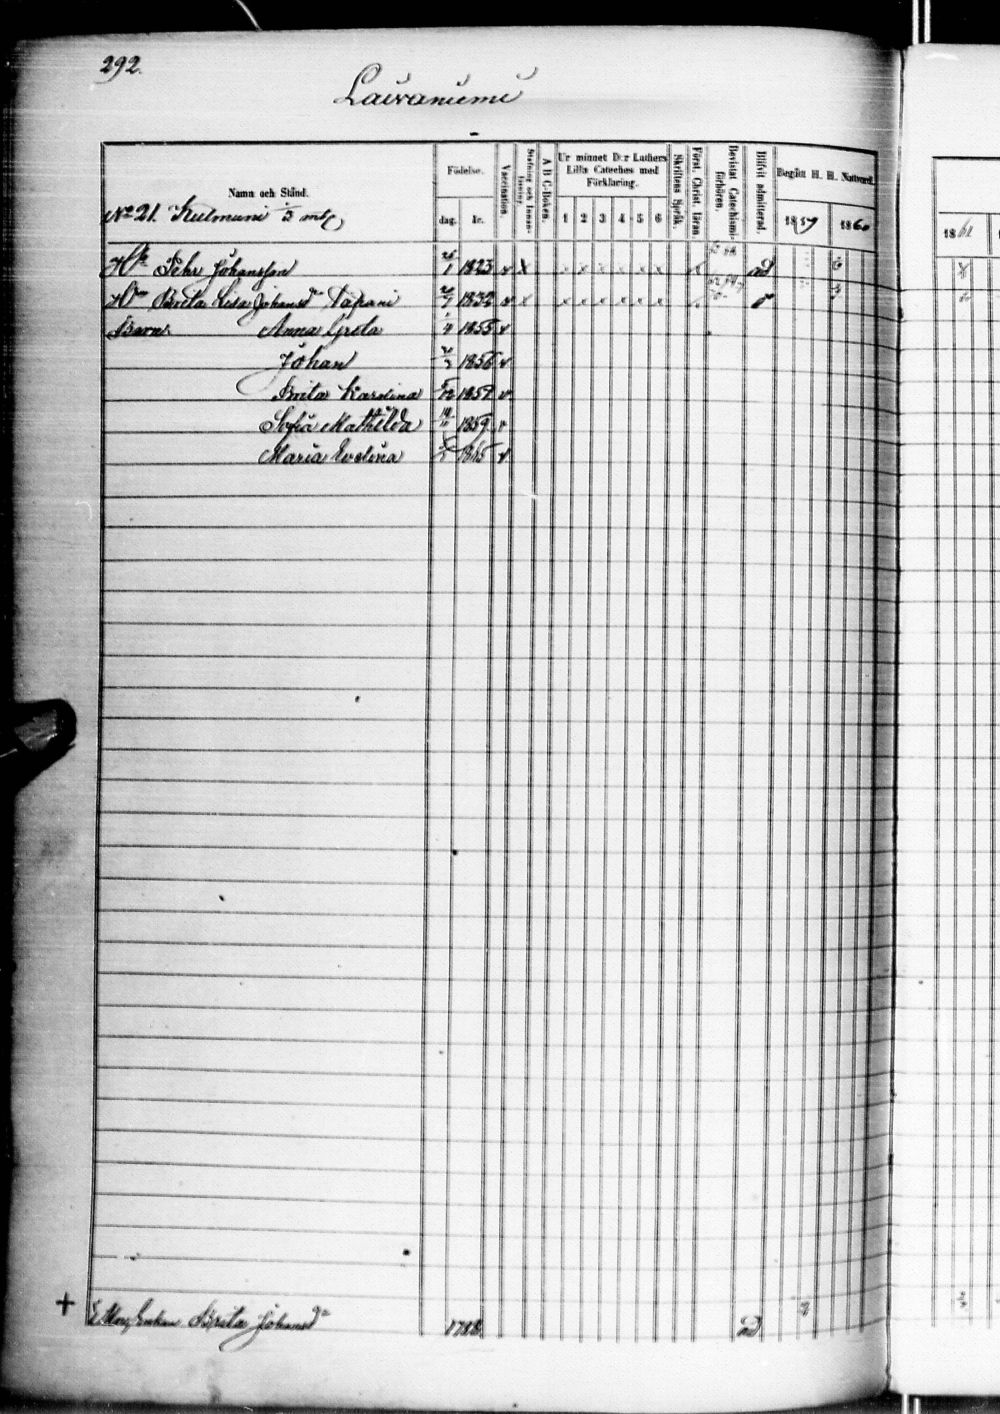 292.
Laivaniemi
Namn och Stånd.
Födelse.
dag. år.
Vaccination.
Stafning och Innan-läsning.
A B C-Boken.
Ur minnet D:r Luthers Lilla Cateches med Förklaring.
1 2 3 4 5 6
Skriftens Språk.
Först. Christ. läran.
Bevistat Catechismi-förhören.
Blifvit admitterad.
Begått H. H. Nattvard.
1859 1860
1861
No 21. Kulmuni 1/3 mtl
Pehr Johansson 1823 v x ad
Brita Lisa Johansdr Tapani 1832 v x
Barn: Anna Greta 1/4 1855 v
Johan 1856 v
Brita Karolina 5/12 1857 v
Sofia Mathilda 1859 v
Maria Evelina 1865 v
+ Enkan Brita Johansdr 1788 ad